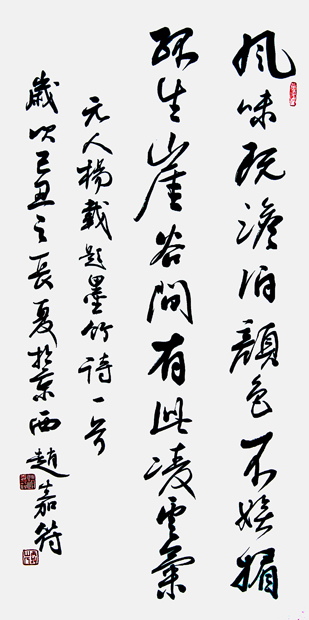 風味既澹泊顏色不嫵媚
孤生崖谷間有此凌雲氣
元人楊載題墨竹詩一首
歲次己丑之長夏於京西趙嘉符